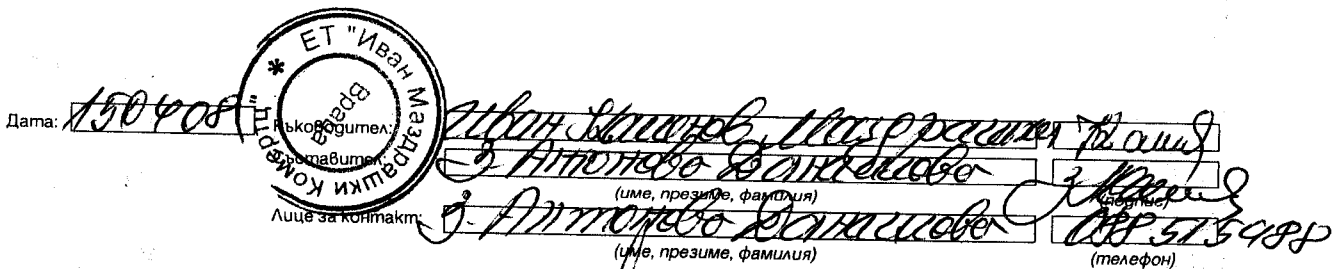 ЕТ "Иван Маздрашки Комерц" * Враца
Дата: 150408 Ръководител: Иван Маздрашки
Съставител: З. Антонова Данаилова
(име, презиме, фамилия) (подпис)
Лице за контакт: З. Антонова Данаилова
(име, презиме, фамилия) (телефон)